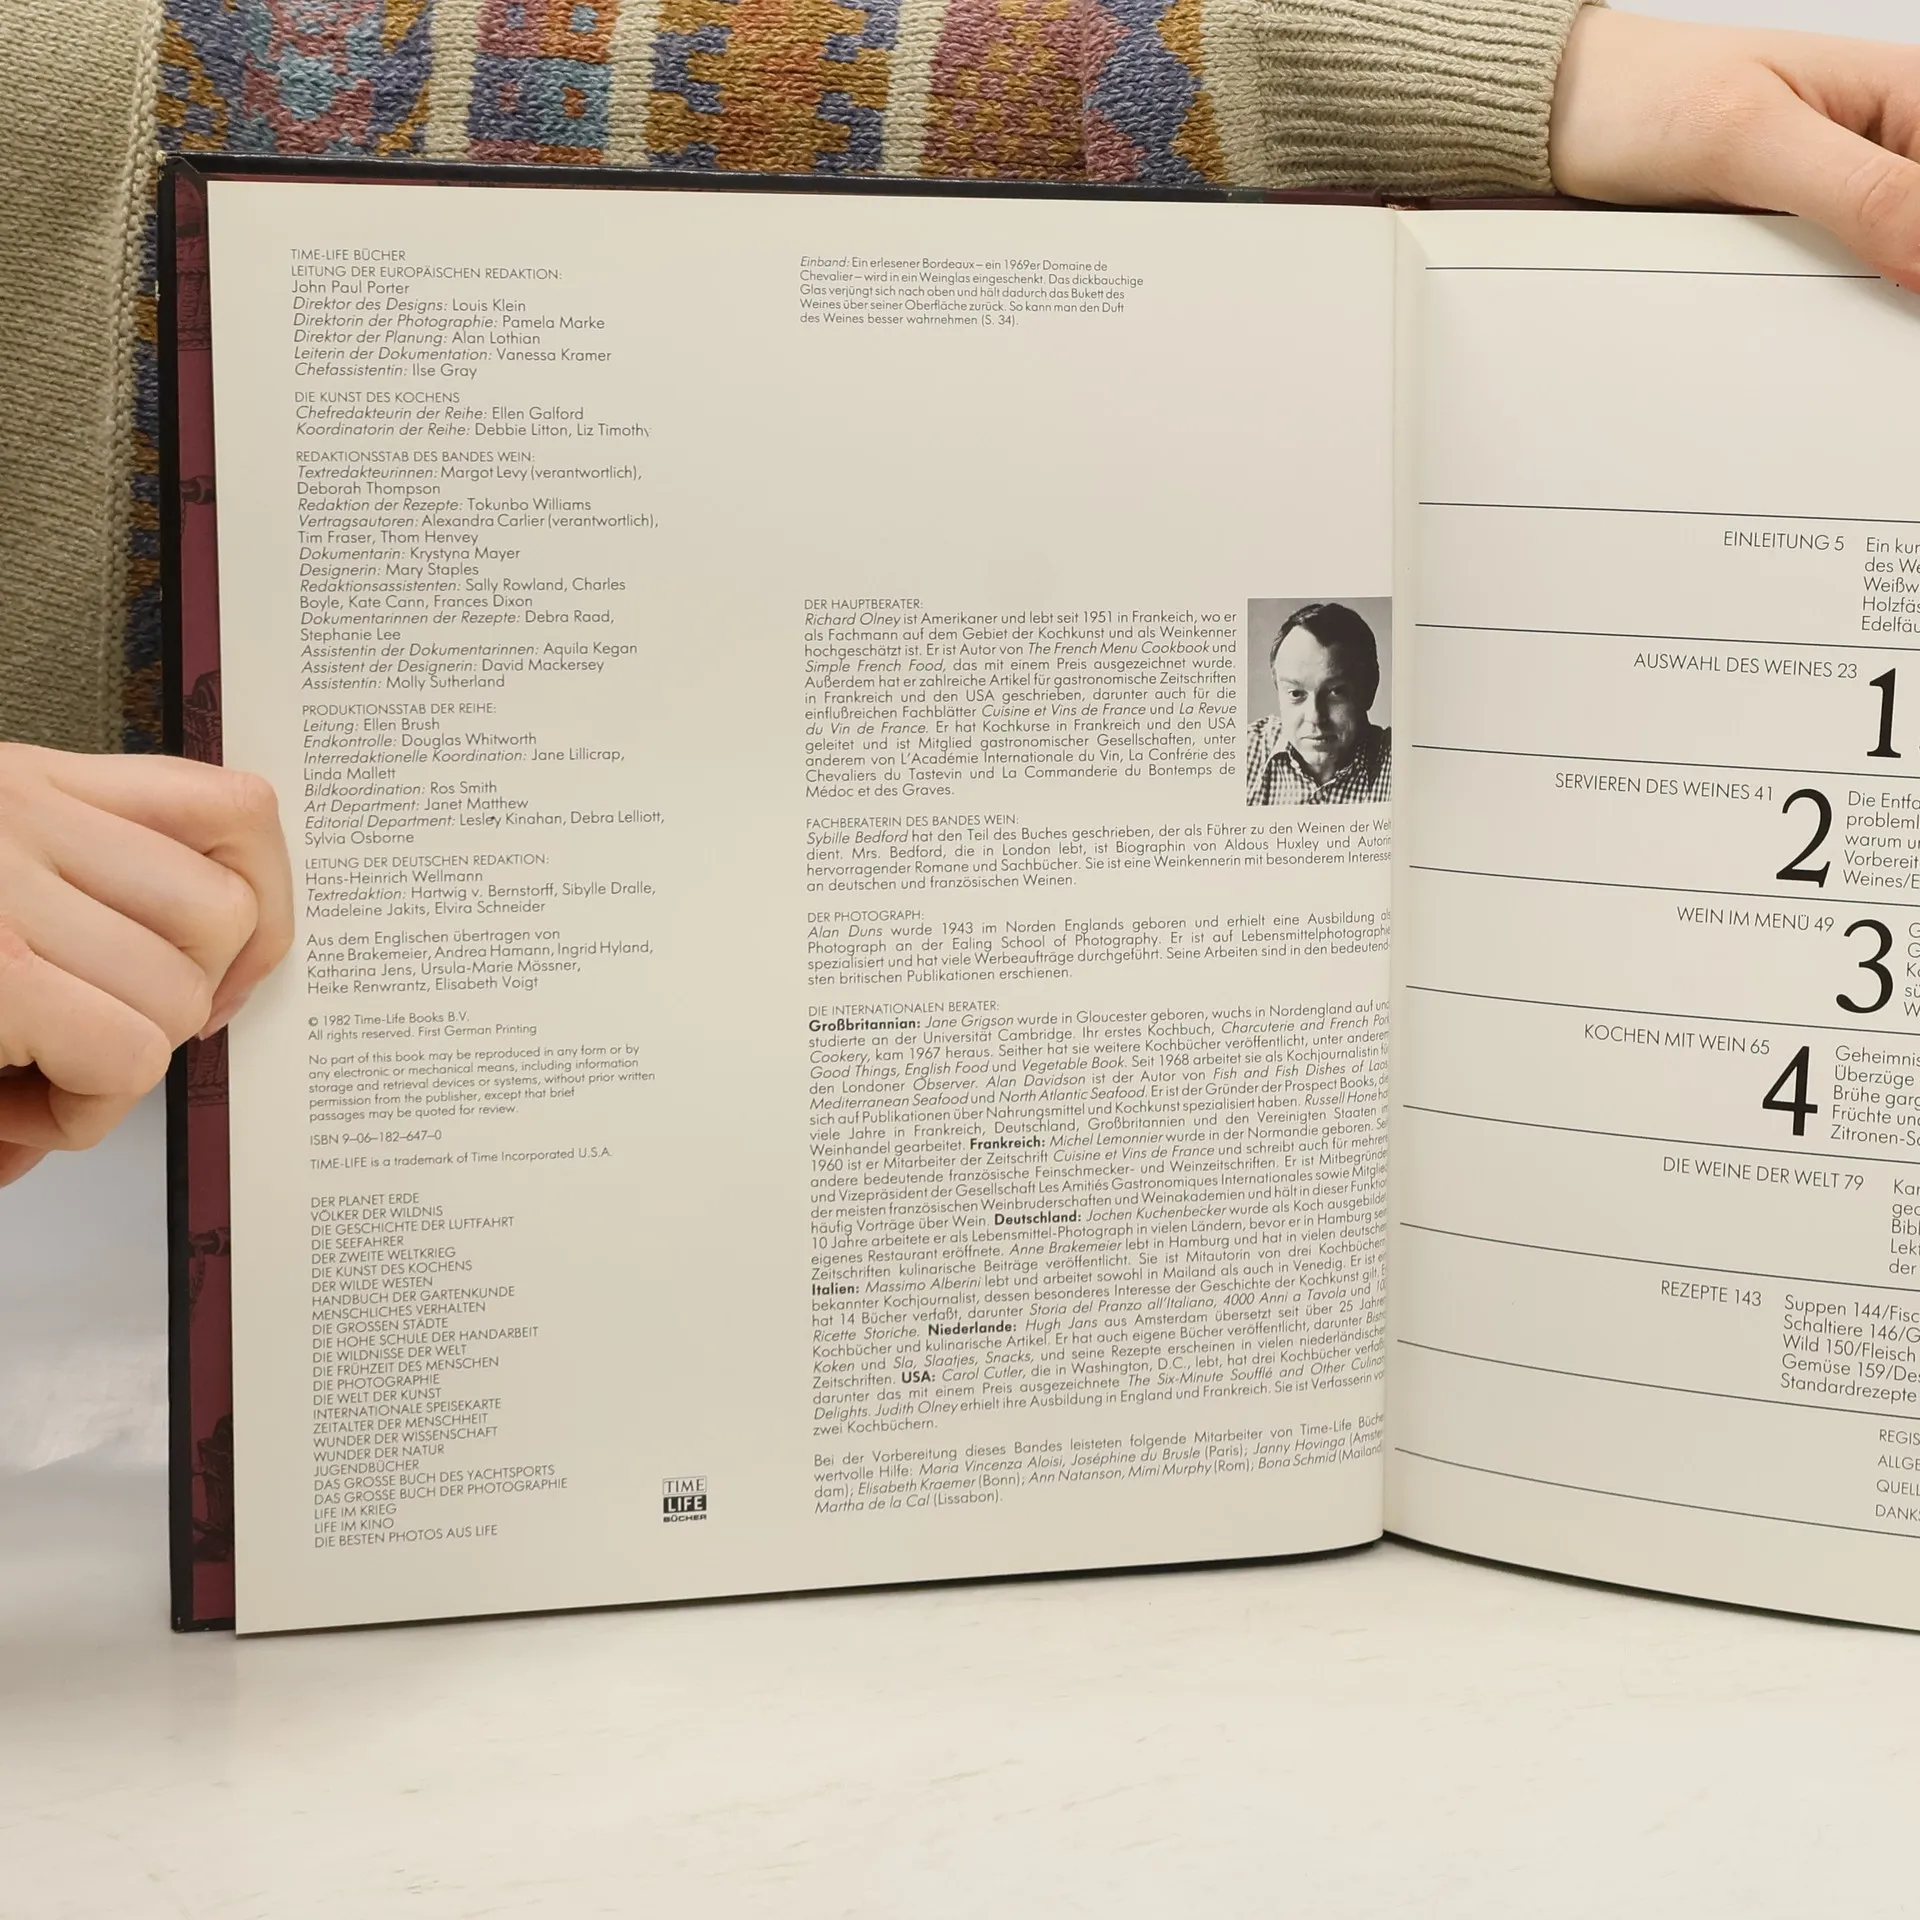 TIME-LIFE BÜCHER
LEITUNG DER EUROPÄISCHEN REDAKTION:
John Paul Porter
Direktor des Designs: Louis Klein
Direktorin der Photographie: Pamela Marke
Direktor der Planung: Alan Lothian
Leiterin der Dokumentation: Vanessa Kramer
Chefassistentin: Ilse Gray
DIE KUNST DES KOCHENS
Chefredakteurin der Reihe: Ellen Galford
Koordinatorin der Reihe: Debbie Litton, Liz Timothy
REDAKTIONSSTAB DES BANDES WEIN:
Textredakteurinnen: Margot Levy (verantwortlich),
Deborah Thompson
Redaktion der Rezepte: Tokunbo Williams
Vertragsautoren: Alexandra Carlier (verantwortlich),
Tim Fraser, Thom Henvey
Dokumentarin: Krystyna Mayer
Designerin: Mary Staples
Redaktionsassistenten: Sally Rowland, Charles
Boyle, Kate Cann, Frances Dixon
Dokumentarinnen der Rezepte: Debra Raad,
Stephanie Lee
Assistentin der Dokumentarinnen: Aquila Kegan
Assistent der Designerin: David Mackersey
Assistentin: Molly Sutherland
PRODUKTIONSSTAB DER REIHE:
Leitung: Ellen Brush
Endkontrolle: Douglas Whitworth
Interredaktionelle Koordination: Jane Lillicrap,
Linda Mallett
Bildkoordination: Ros Smith
Art Department: Janet Matthew
Editorial Department: Lesley Kinahan, Debra Lelliott,
Sylvia Osborne
LEITUNG DER DEUTSCHEN REDAKTION:
Hans-Heinrich Wellmann
Textredaktion: Hartwig v. Bernstorff, Sibylle Dralle,
Madeleine Jakits, Elvira Schneider
Aus dem Englischen übertragen von
Anne Brakemeier, Andrea Hamann, Ingrid Hyland,
Katharina Jens, Ursula-Marie Mössner,
Heike Renwrantz, Elisabeth Voigt
© 1982 Time-Life Books B.V.
All rights reserved. First German Printing
No part of this book may be reproduced in any form or by
any electronic or mechanical means, including information
storage and retrieval devices or systems, without prior written
permission from the publisher, except that brief
passages may be quoted for review.
ISBN 9-06-182-647-0
TIME-LIFE is a trademark of Time Incorporated U.S.A.
DER PLANET ERDE
VÖLKER DER WILDNIS
DIE GESCHICHTE DER LUFTFAHRT
DIE SEEFAHRER
DER ZWEITE WELTKRIEG
DIE KUNST DES KOCHENS
DER WILDE WESTEN
HANDBUCH DER GARTENKUNDE
MENSCHLICHES VERHALTEN
DIE GROSSEN STÄDTE
DIE HOHE SCHULE DER HANDARBEIT
DIE WILDNISSE DER WELT
DIE FRÜHZEIT DES MENSCHEN
DIE PHOTOGRAPHIE
DIE WELT DER KUNST
INTERNATIONALE SPEISEKARTE
ZEITALTER DER MENSCHHEIT
WUNDER DER WISSENSCHAFT
WUNDER DER NATUR
JUGENDBÜCHER
DAS GROSSE BUCH DES YACHTSPORTS
DAS GROSSE BUCH DER PHOTOGRAPHIE
LIFE IM KRIEG
LIFE IM KINO
DIE BESTEN PHOTOS AUS LIFE
TIME
LIFE
BÜCHER
Einband: Ein erlesener Bordeaux – ein 1969er Domaine de
Chevalier – wird in ein Weinglas eingeschenkt. Das dickbauchige
Glas verjüngt sich nach oben und hält dadurch das Bukett des
Weines über seiner Oberfläche zurück. So kann man den Duft
des Weines besser wahrnehmen (S. 34).
DER HAUPTBERATER:
Richard Olney ist Amerikaner und lebt seit 1951 in Frankeich, wo er
als Fachmann auf dem Gebiet der Kochkunst und als Weinkenner
hochgeschätzt ist. Er ist Autor von The French Menu Cookbook und
Simple French Food, das mit einem Preis ausgezeichnet wurde.
Außerdem hat er zahlreiche Artikel für gastronomische Zeitschriften
in Frankreich und den USA geschrieben, darunter auch für die
einflußreichen Fachblätter Cuisine et Vins de France und La Revue
du Vin de France. Er hat Kochkurse in Frankreich und den USA
geleitet und ist Mitglied gastronomischer Gesellschaften, unter
anderem von L'Académie Internationale du Vin, La Confrérie des
Chevaliers du Tastevin und La Commanderie du Bontemps de
Médoc et des Graves.
FACHBERATERIN DES BANDES WEIN:
Sybille Bedford hat den Teil des Buches geschrieben, der als Führer zu den Weinen der Welt
dient. Mrs. Bedford, die in London lebt, ist Biographin von Aldous Huxley und Autorin
hervorragender Romane und Sachbücher. Sie ist eine Weinkennerin mit besonderem Interesse
an deutschen und französischen Weinen.
DER PHOTOGRAPH:
Alan Duns wurde 1943 im Norden Englands geboren und erhielt eine Ausbildung als
Photograph an der Ealing School of Photography. Er ist auf Lebensmittelphotographie
spezialisiert und hat viele Werbeaufträge durchgeführt. Seine Arbeiten sind in den bedeutend-
sten britischen Publikationen erschienen.
DIE INTERNATIONALEN BERATER:
Großbritannian: Jane Grigson wurde in Gloucester geboren, wuchs in Nordengland auf und
studierte an der Universität Cambridge. Ihr erstes Kochbuch, Charcuterie and French Pork
Cookery, kam 1967 heraus. Seither hat sie weitere Kochbücher veröffentlicht, unter anderem
Good Things, English Food und Vegetable Book. Seit 1968 arbeitet sie als Kochjournalistin für
den Londoner Observer. Alan Davidson ist der Autor von Fish and Fish Dishes of Laos,
Mediterranean Seafood und North Atlantic Seafood. Er ist der Gründer der Prospect Books, die
sich auf Publikationen über Nahrungsmittel und Kochkunst spezialisiert haben. Russell Hone hat
viele Jahre in Frankreich, Deutschland, Großbritannien und den Vereinigten Staaten im
Weinhandel gearbeitet. Frankreich: Michel Lemonnier wurde in der Normandie geboren. Seit
1960 ist er Mitarbeiter der Zeitschrift Cuisine et Vins de France und schreibt auch für mehrere
andere bedeutende französische Feinschmecker- und Weinzeitschriften. Er ist Mitbegründer
und Vizepräsident der Gesellschaft Les Amitiés Gastronomiques Internationales sowie Mitglied
der meisten französischen Weinbruderschaften und Weinakademien und hält in dieser Funktion
häufig Vorträge über Wein. Deutschland: Jochen Kuchenbecker wurde als Koch ausgebildet.
10 Jahre arbeitete er als Lebensmittel-Photograph in vielen Ländern, bevor er in Hamburg sein
eigenes Restaurant eröffnete. Anne Brakemeier lebt in Hamburg und hat in vielen deutschen
Zeitschriften kulinarische Beiträge veröffentlicht. Sie ist Mitautorin von drei Kochbüchern.
Italien: Massimo Alberini lebt und arbeitet sowohl in Mailand als auch in Venedig. Er ist ein
bekannter Kochjournalist, dessen besonderes Interesse der Geschichte der Kochkunst gilt. Er
hat 14 Bücher verfaßt, darunter Storia del Pranzo all'Italiana, 4000 Anni a Tavola und 100
Ricette Storiche. Niederlande: Hugh Jans aus Amsterdam übersetzt seit über 25 Jahren
Kochbücher und kulinarische Artikel. Er hat auch eigene Bücher veröffentlicht, darunter Bistro
Koken und Sla, Slaatjes, Snacks, und seine Rezepte erscheinen in vielen niederländischen
Zeitschriften. USA: Carol Cutler, die in Washington, D.C., lebt, hat drei Kochbücher verfaßt,
darunter das mit einem Preis ausgezeichnete The Six-Minute Soufflé and Other Culinary
Delights. Judith Olney erhielt ihre Ausbildung in England und Frankreich. Sie ist Verfasserin von
zwei Kochbüchern.
Bei der Vorbereitung dieses Bandes leisteten folgende Mitarbeiter von Time-Life Bücher
wertvolle Hilfe: Maria Vincenza Aloisi, Joséphine du Brusle (Paris); Janny Hovinga (Amster-
dam); Elisabeth Kraemer (Bonn); Ann Natanson, Mimi Murphy (Rom); Bona Schmid (Mailand);
Martha de la Cal (Lissabon).
EINLEITUNG 5 Ein kur
des We
Weißw
Holzfäs
Edelfäu
AUSWAHL DES WEINES 23 1
SERVIEREN DES WEINES 41 2 Die Entfa
probleml
warum u
Vorbereit
Weines/E
WEIN IM MENÜ 49 3
KOCHEN MIT WEIN 65 4 Geheimnis
Überzüge
Brühe garg
Früchte und
Zitronen-So
DIE WEINE DER WELT 79 Kar
geo
Bibl
Lekt
der
REZEPTE 143 Suppen 144/Fisc
Schaltiere 146/G
Wild 150/Fleisch
Gemüse 159/Des
Standardrezepte
REGIS
ALLGE
QUELL
DANKS